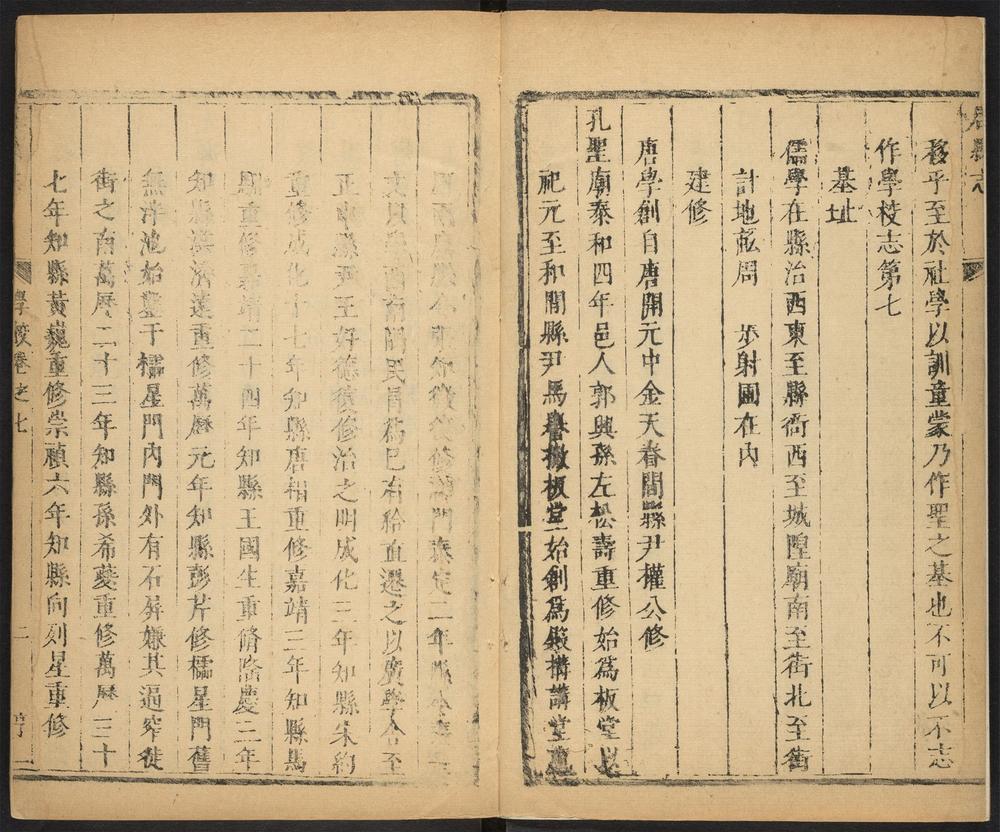 縣志
移乎至於社學以訓童蒙乃作聖之基也不可以不志
作學校志第七
基址
儒學在縣治西東至縣衙西至城隍廟南至街北至街
計地畝周　步射圃在內
建修
唐學創自唐開元中金天眷間縣尹權公修
孔聖廟泰和四年邑人郭興孫左松壽重修始為板堂以
祀元至和間縣尹馬譽撤板堂始創為殿搆講堂
修門嘉定二年
民居為巳有給直遷之以廣學舍至
正中縣尹王好德復修治之明成化三年知縣朱約
重修成化十七年知縣唐相重修嘉靖三年知縣馬
重修嘉靖二十四年知縣王國生重脩隆慶三年
知縣濟遠重修萬曆元年知縣彭芹修櫺星門舊
無泮池始鑿于櫺星門內門外有石屏嫌其逼窄徙
街之南萬曆二十三年知縣孫希夔重修萬曆三十
七年知縣黃巍重修崇禎六年知縣向列星重修
學校卷之七
二